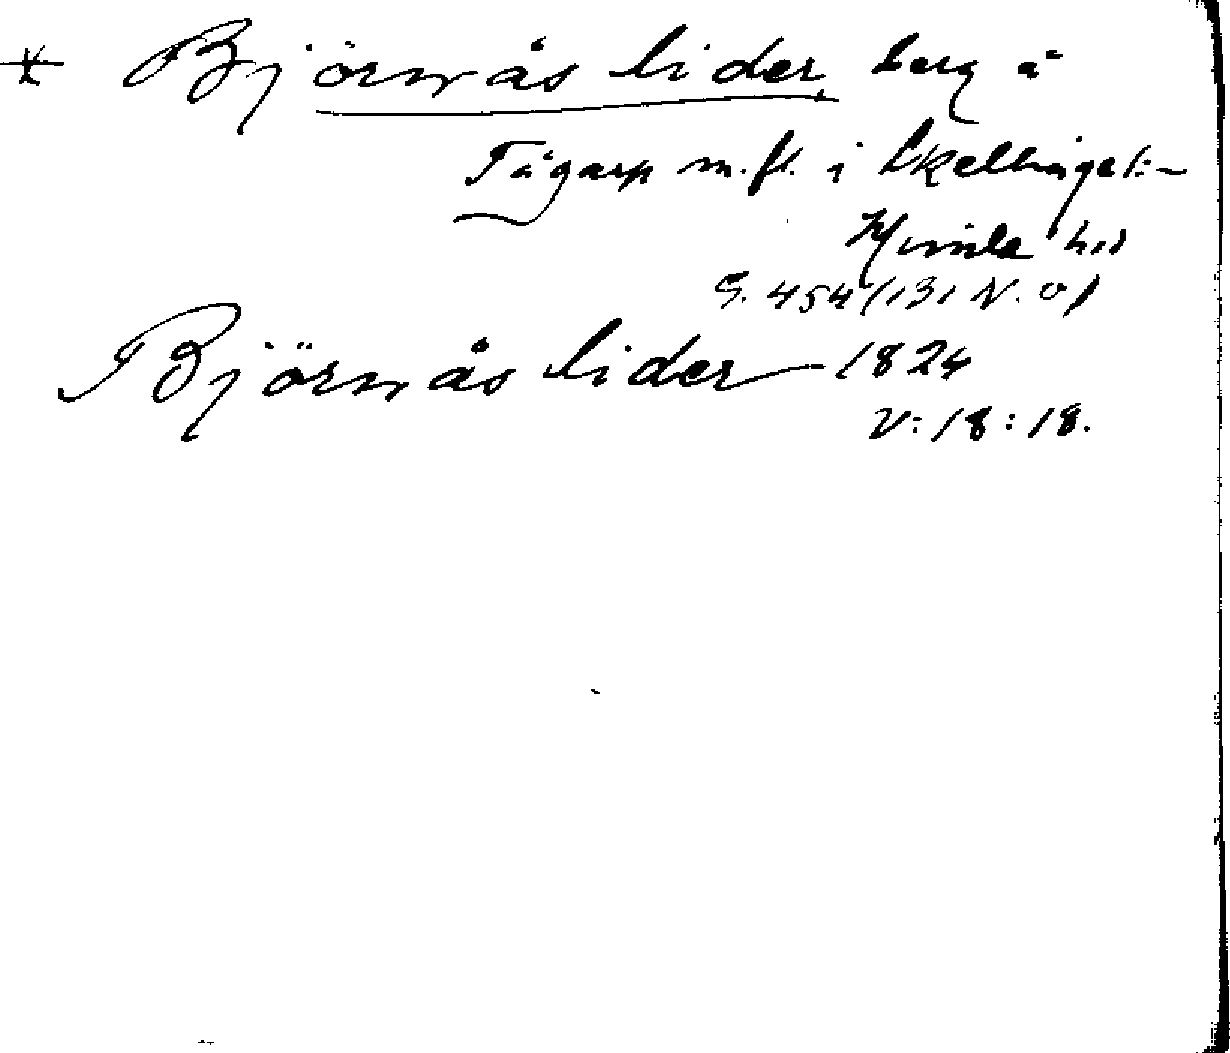 * Björnås lider, berg å
Tågarp m.fl. i
Himle hd
G. 454 (131 N.O)
Björnås lider 1824
V: 18: 18.